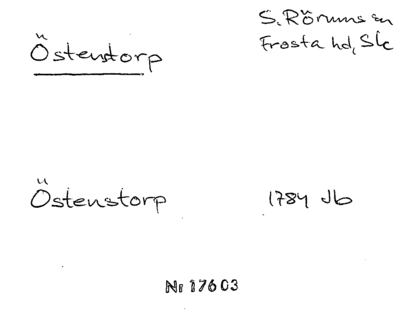 Östenstorp
S. Rörums sn
Frosta hd, Sk
Östenstorp 1784 Jb
Nr 17603